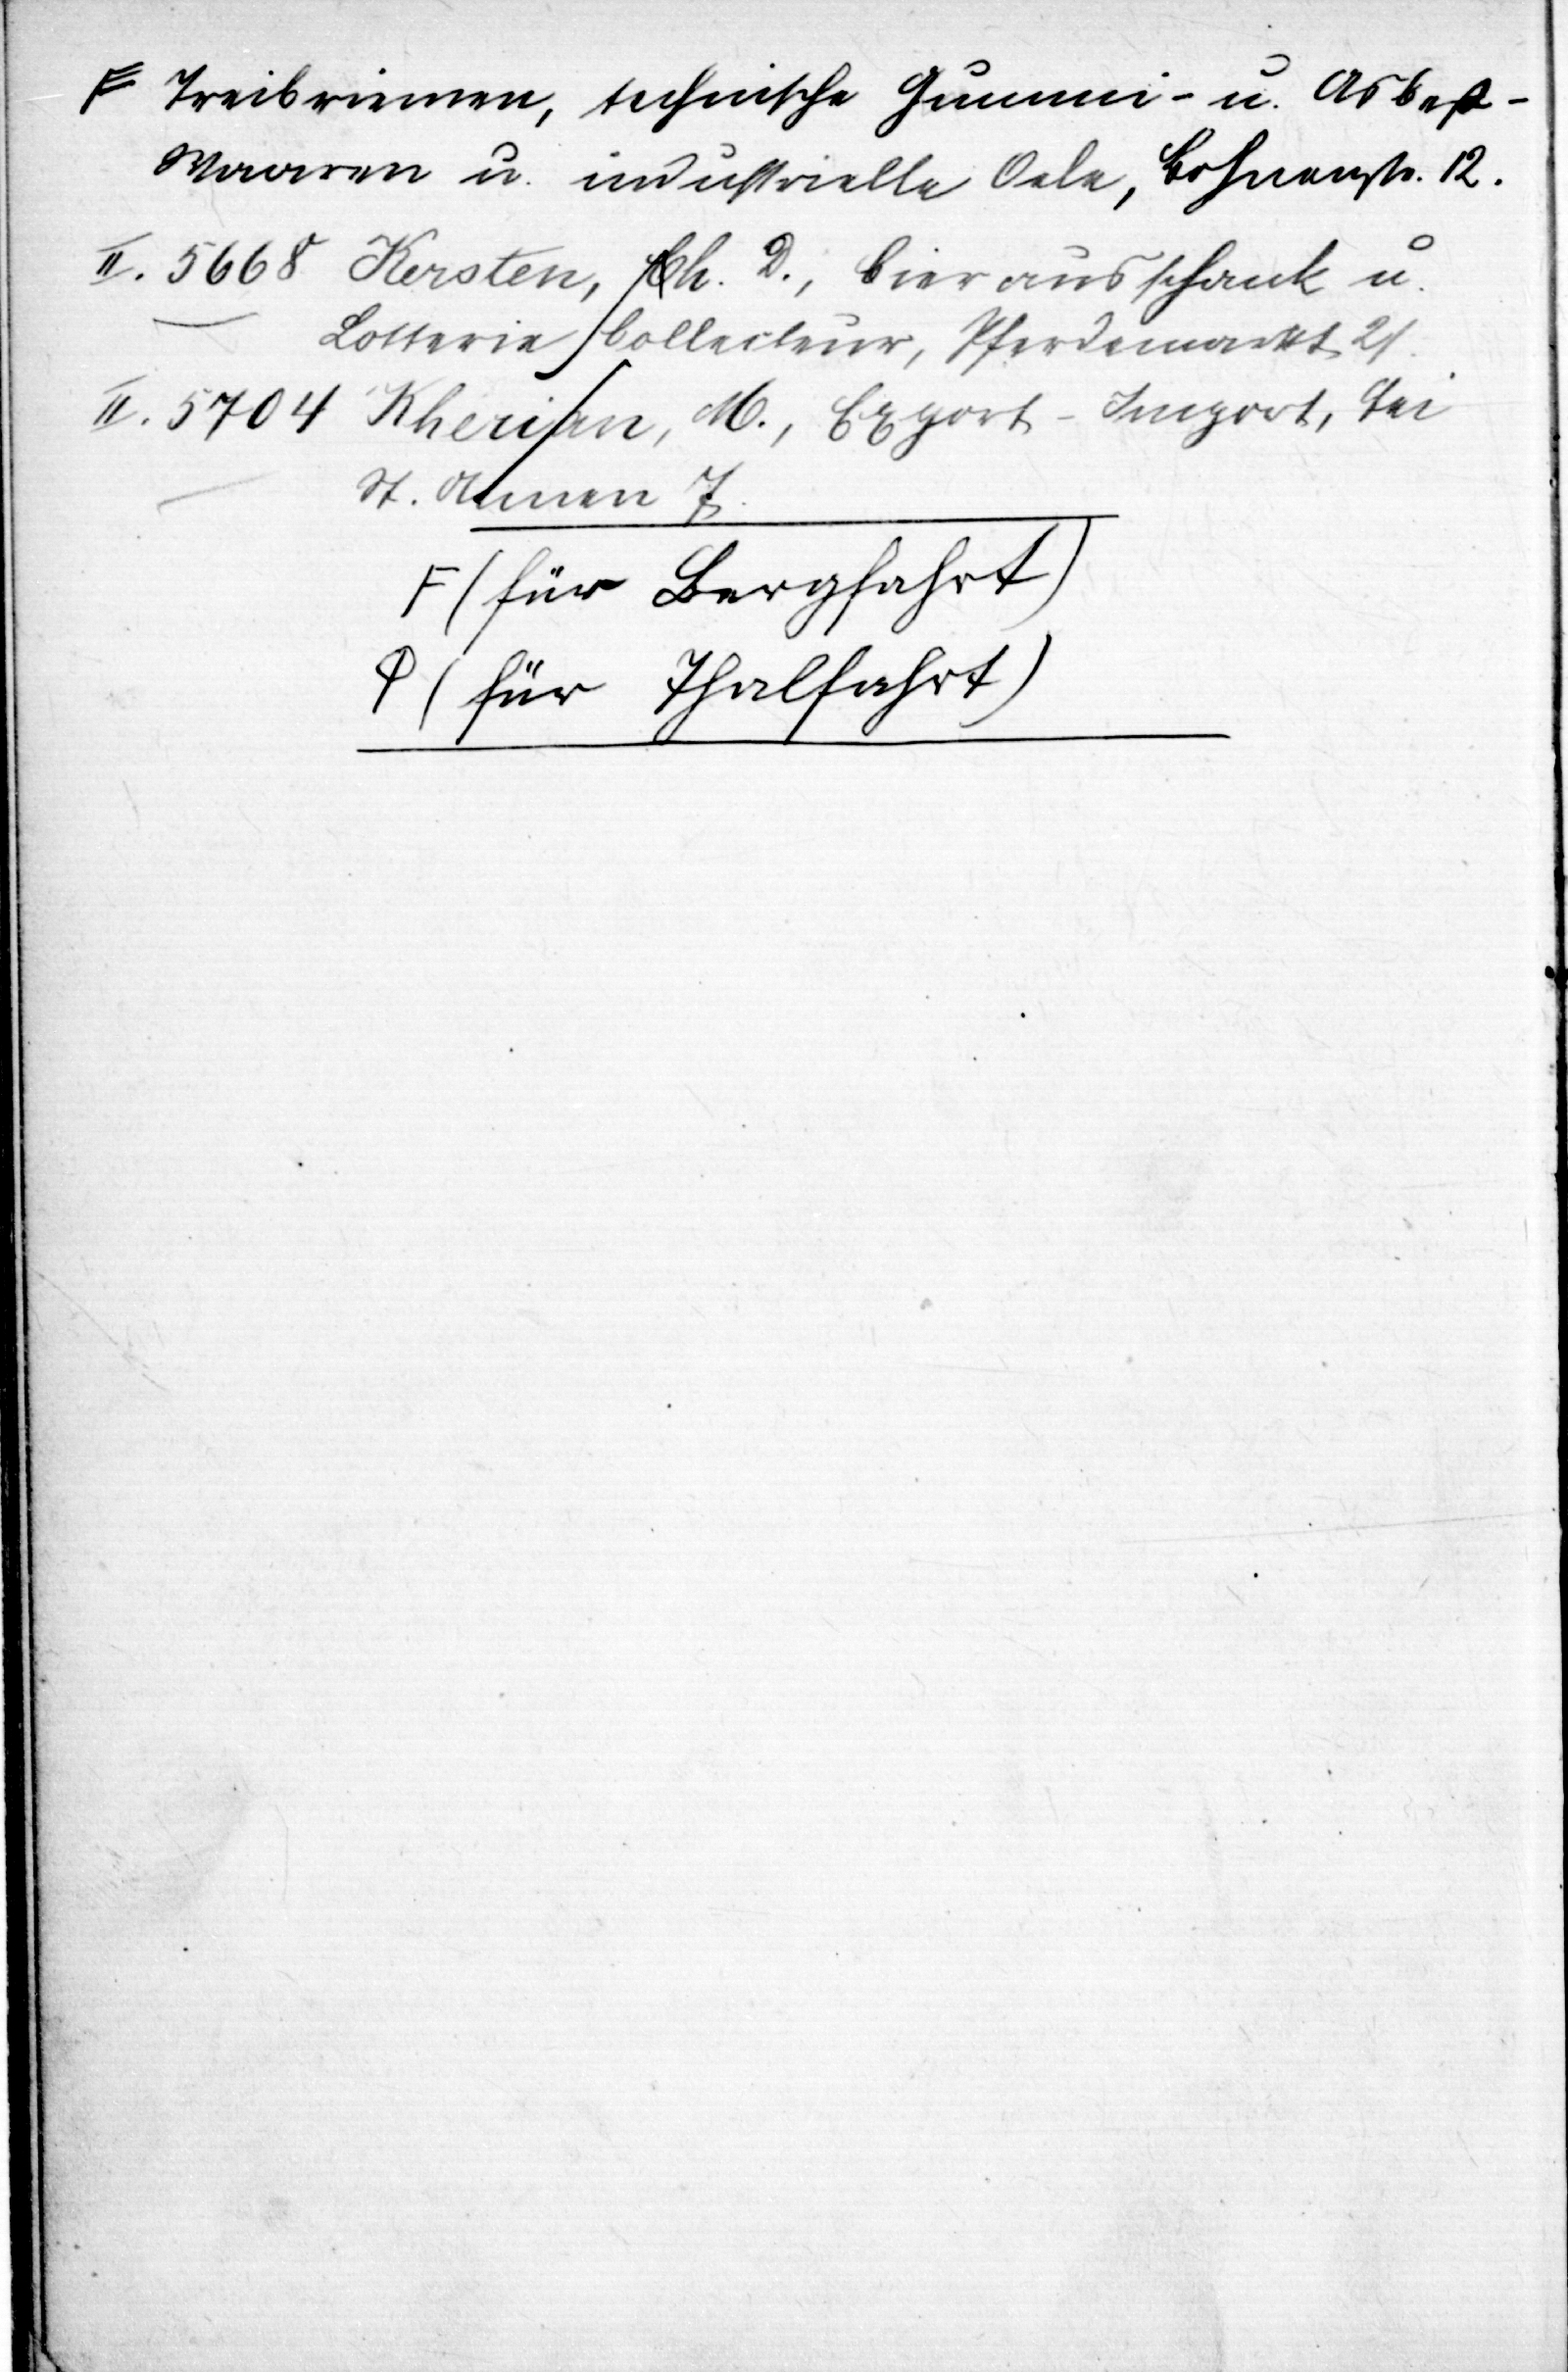 F Treibriemen, technische Gummi- u. Asbest-
Waaren u. industrielle Oele, Bohnenstr. 12.
II. 5668 Kersten, Ch. D., Bierausschank u.
Lotterie Collecteur, Pferdemarkt 21.
II. 5704 Kherian, M., Export-Import, Bei
St. Annen 7.
F (für Bergfahrt)
(für Thalfahrt)